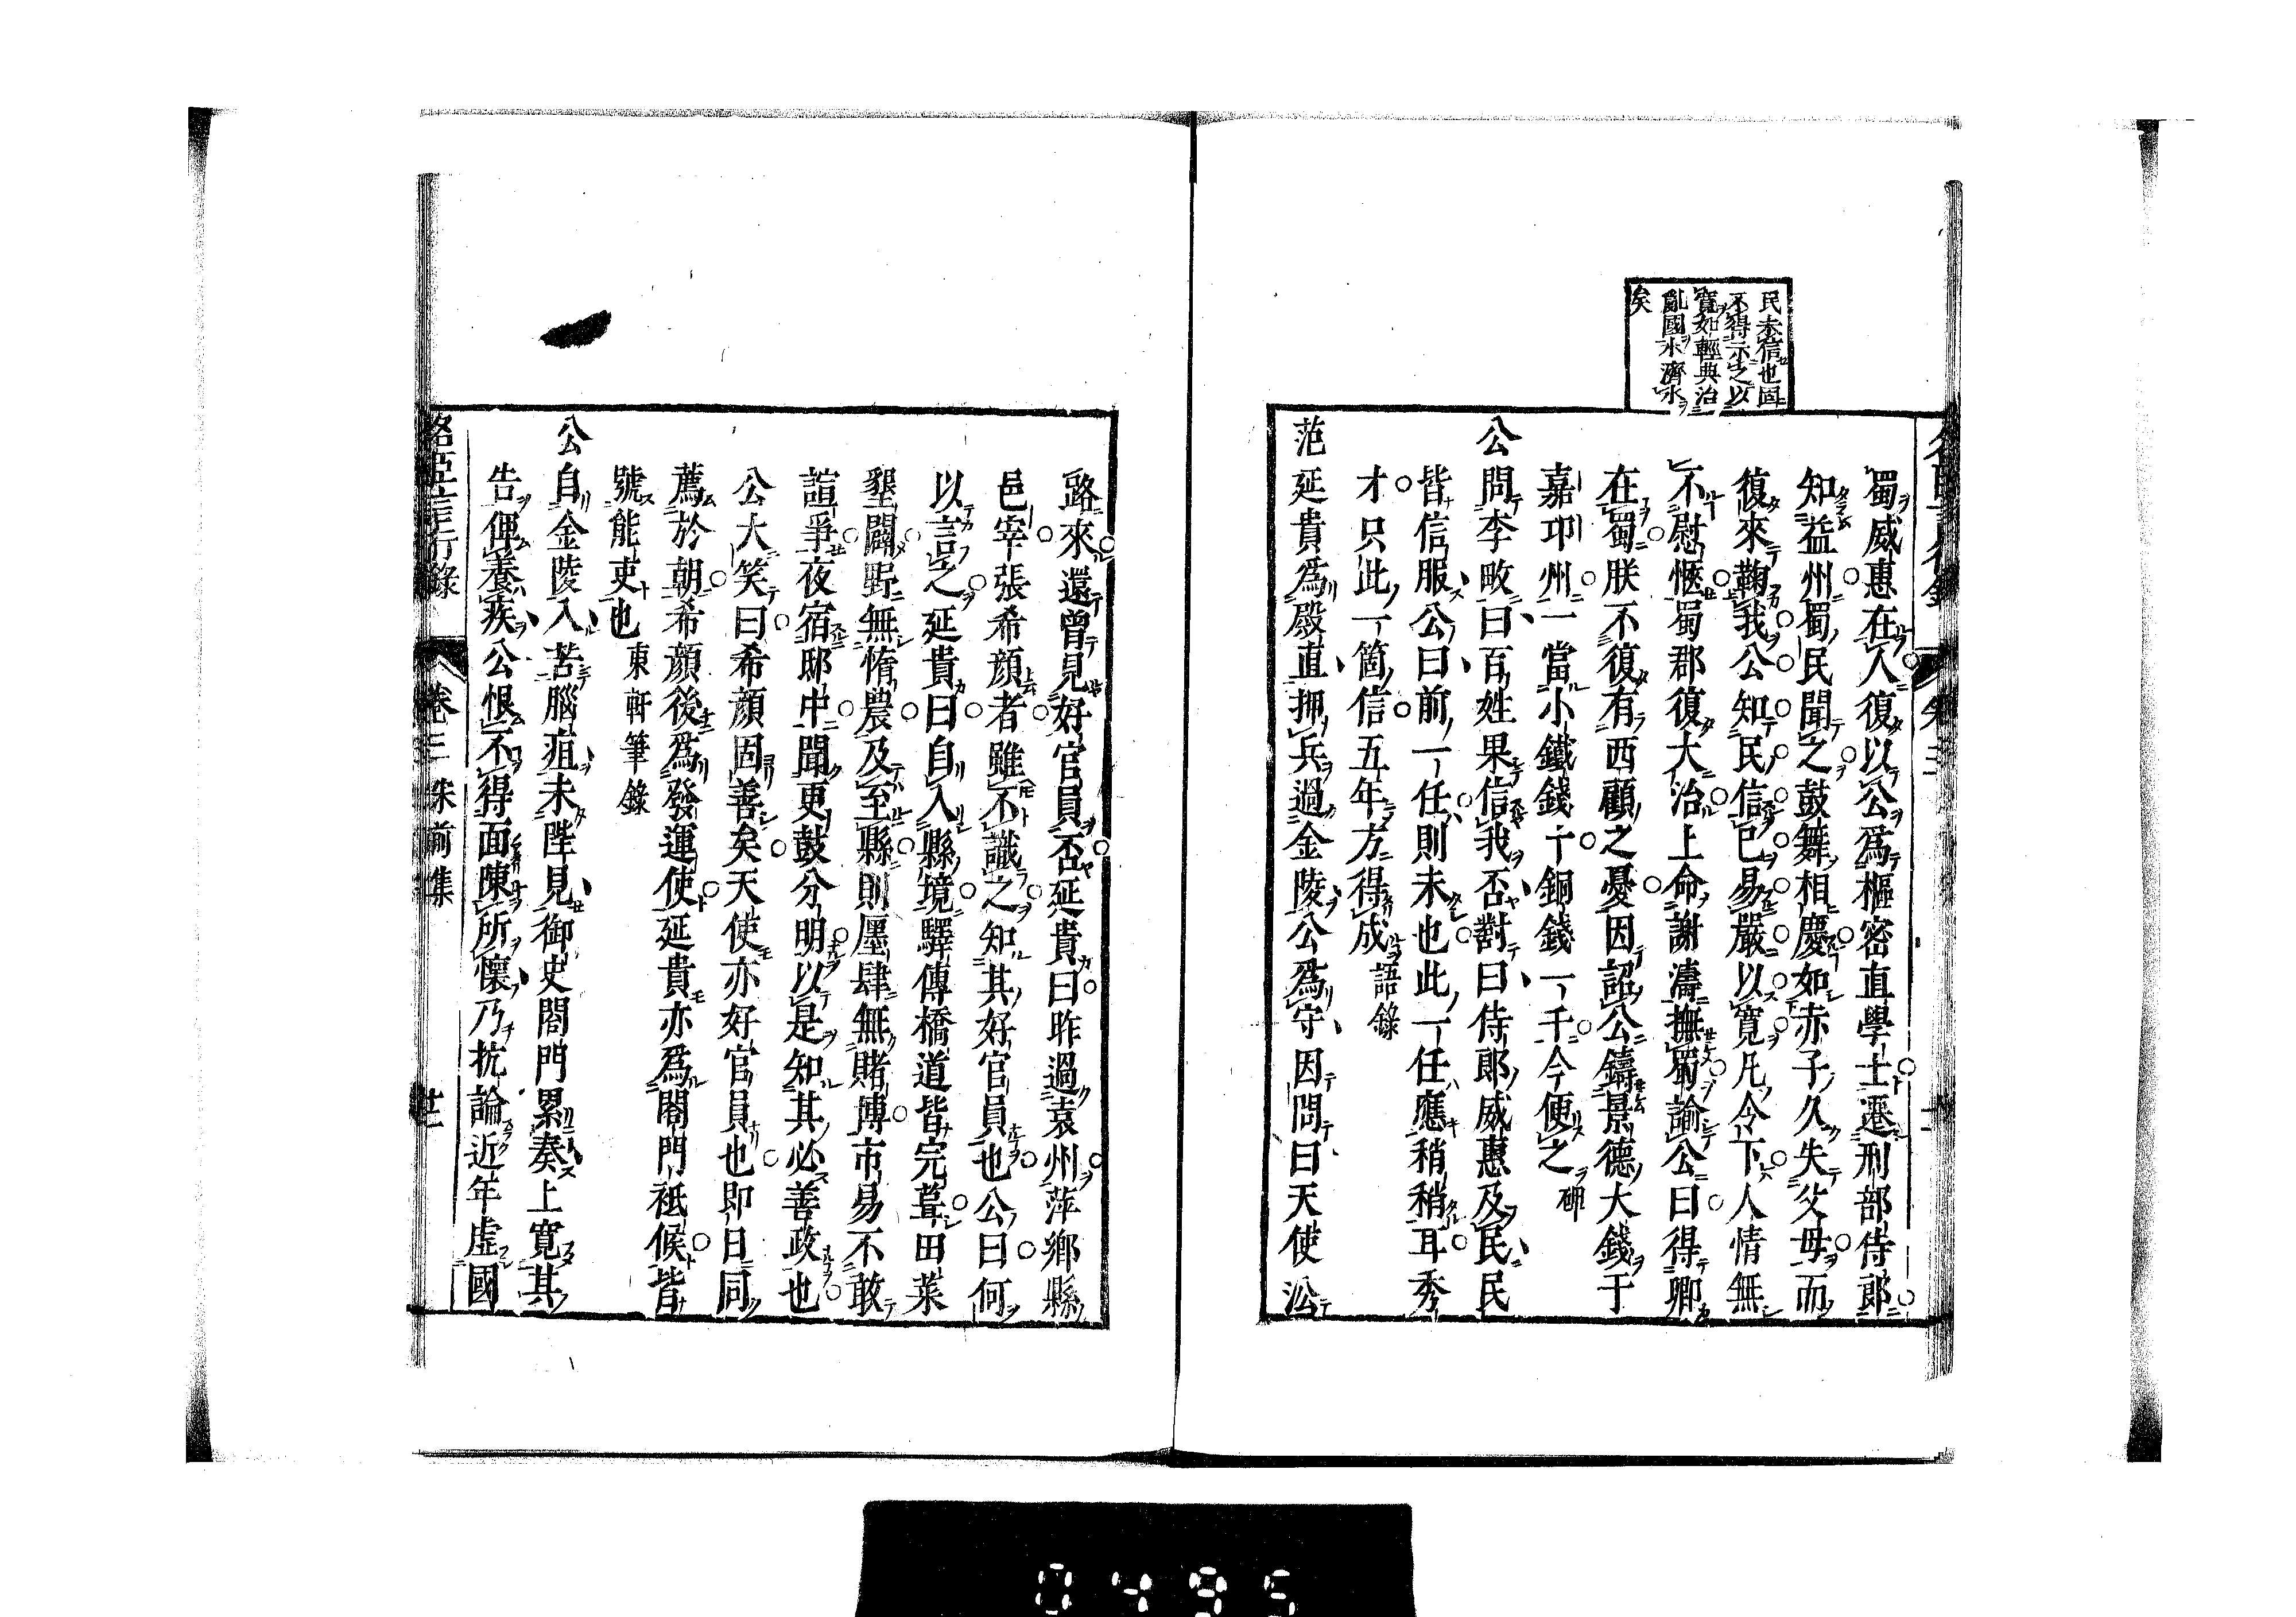 民未信也固
不得示之以
寬如輕典治
亂國水濟水
矣
蜀威惠在人復以公爲樞密直學士遷刑部侍郎
知益州蜀民聞之鼓舞相慶如赤子久失父母而
復來鞠我公知民信已易嚴以寬凡令下人情無
不慰愜蜀郡復大治上命謝濤撫蜀諭公曰得卿
在蜀朕不復有西顧之憂因詔公鑄景德大錢于
嘉卭州一當小鐵錢十銅錢一千今便之
公問李畋曰百姓果信我否對曰侍郎威惠及民民
皆信服公曰前一任則未也此一任應稍稍耳秀
才只此一箇信五年方得成語錄
范延貴爲殿直押兵過金陵公爲守因問曰天使㳂
路來還曾見好官員否延貴曰昨過袁州萍鄉縣
邑宰張希顔者雖不識之知其好官員也公曰何
以言之延貴曰自入縣境驛傳橋道皆完葺田萊
墾闢野無惰農及至縣則廛肆無賭博市易不敢
諠爭夜宿邸中聞更鼓分明以是知其必善政也
公大笑曰希顔固善矣天使亦好官員也即日同
薦於朝希顔後爲發運使延貴亦爲閤門祗候皆
號能吏也東軒筆錄
公自金陵入苦腦疽未陛見御史閤門累奏上寬其
告俾養疾公恨不得面陳所懷乃抗論近年虛國
名臣言行錄 卷三 朱前集 廿二